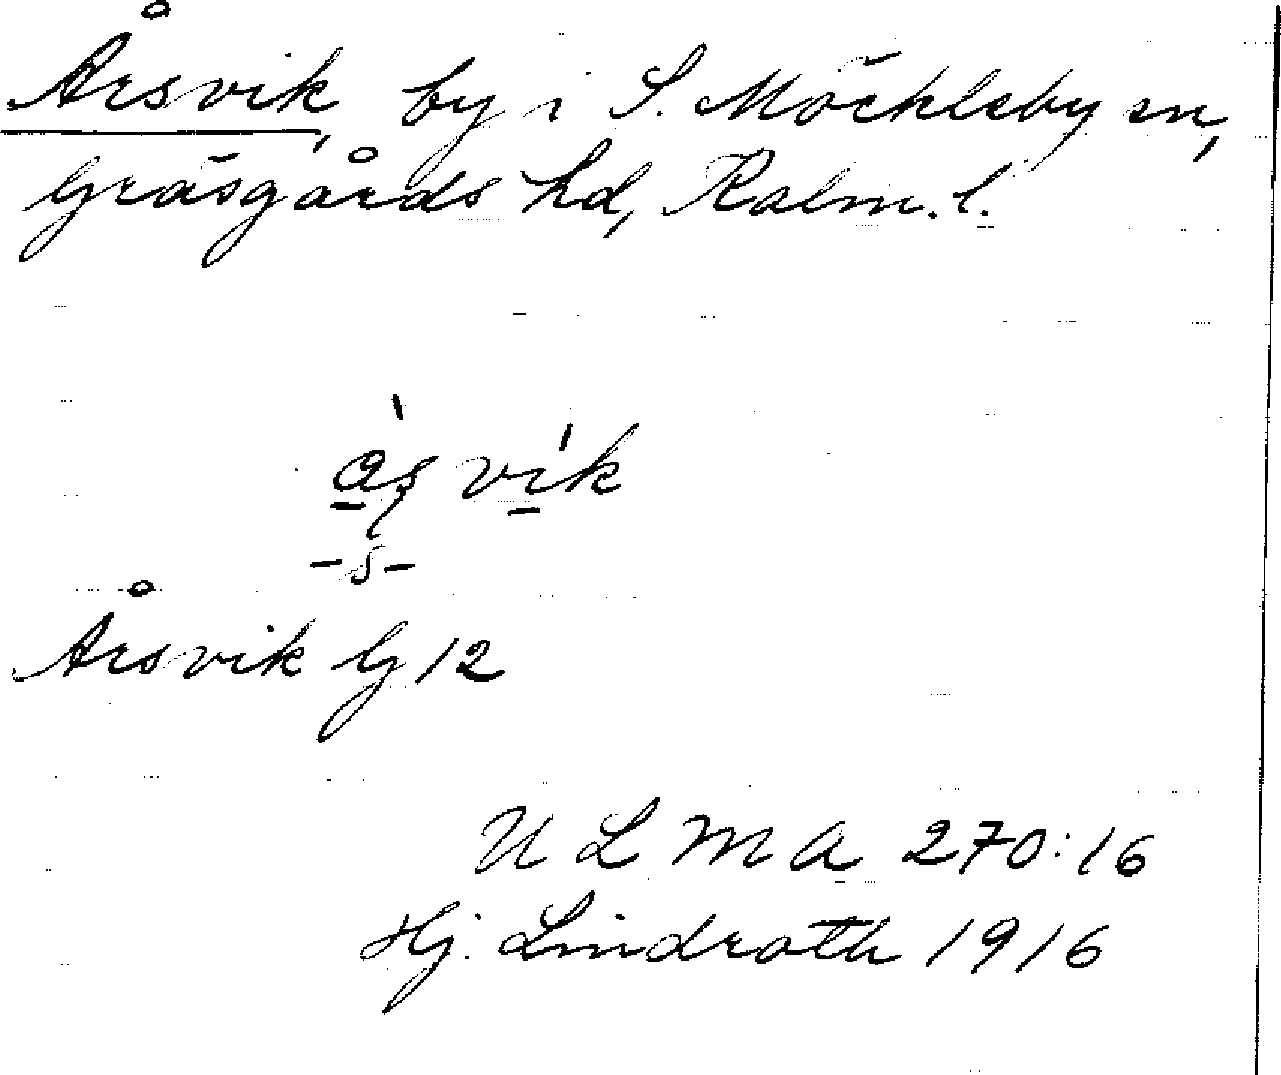 Årsvik, by i S. Möckleby sn,
Gräsgårds hd, Kalm. l.
às̨ vík
-s-
Årsvik G 12
ULMA 270:16
Hj. Lindroth 1916